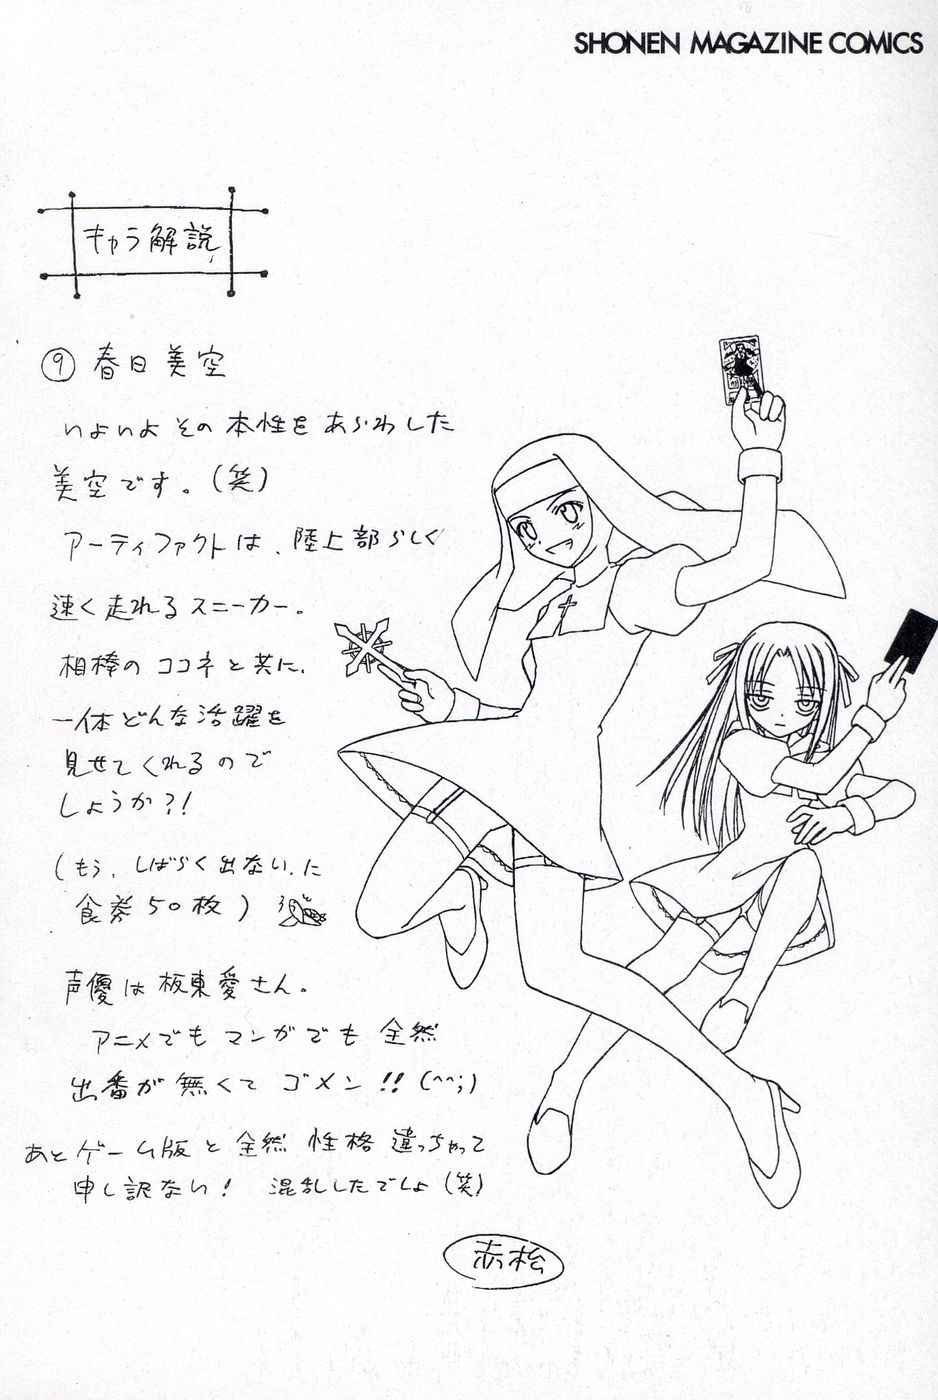 SHONEN MAGAZINE COMICS
キャラ解説
⑨ 春日美空
いよいよ その 本性を あらわした
美空です。(笑)
アーティファクトは、陸上部らしく
速く走れるスニーカー。
相棒の ココネと共に、
一体どんな活躍を
見せてくれるので
しょうか?!
(もう、しばらく出ない、に
食券50枚)
声優は板東愛さん。
アニメでも マンガでも 全然
出番が 無くて ゴメン!!(^^;)
あとゲーム版と 全然 性格 違っちゃって
申し訳ない! 混乱したでしょ(笑)
赤松